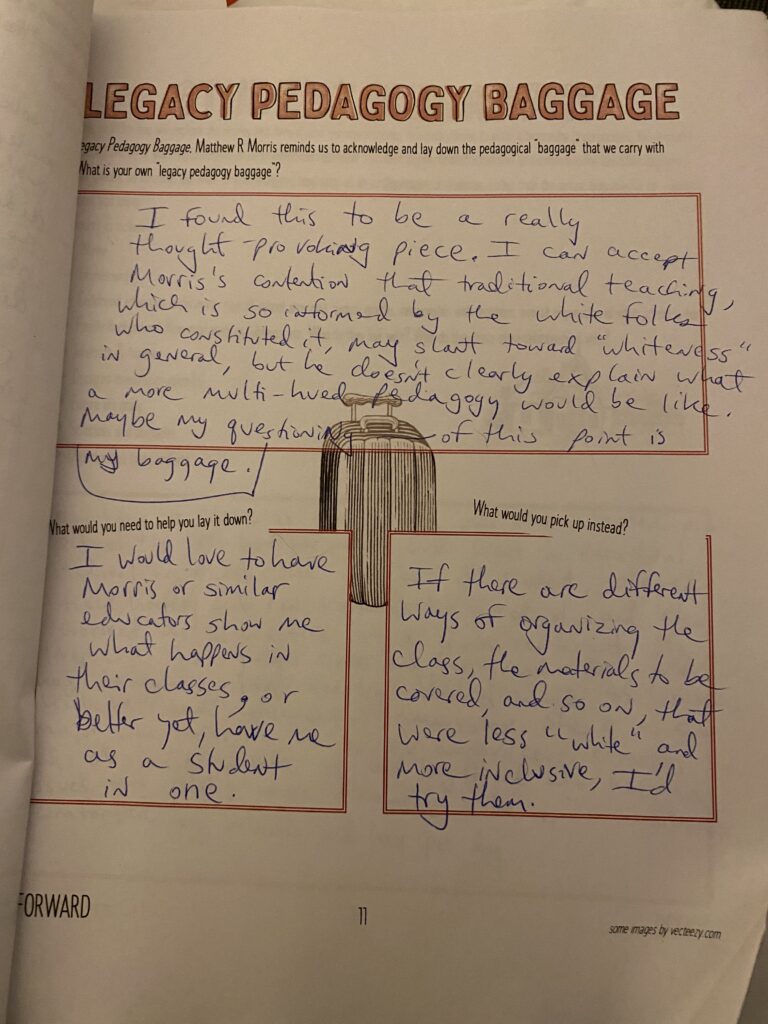 LEGACY PEDAGOGY BAGGAGE
egacy Pedagogy Baggage, Matthew R Morris reminds us to acknowledge and lay down the pedagogical "baggage" that we carry with
What is your own "legacy pedagogy baggage"?
I found this to be a really
thought-provoking piece. I can accept
Morris's contention that traditional teaching,
which is so informed by the white folks
who constituted it, may slant toward "whiteness"
in general, but he doesn't clearly explain what
a more multi-hued pedagogy would be like.
Maybe my questioning of this point is
my baggage.
What would you need to help you lay it down?
I would love to have
Morris or similar
educators show me
what happens in
their classes, or
better yet, have me
as a student
in one.
What would you pick up instead?
If there are different
ways of organizing the
class, the materials to be
covered, and so on, that
were less "white" and
more inclusive, I'd
try them.
FORWARD
11
some images by vecteezy.com